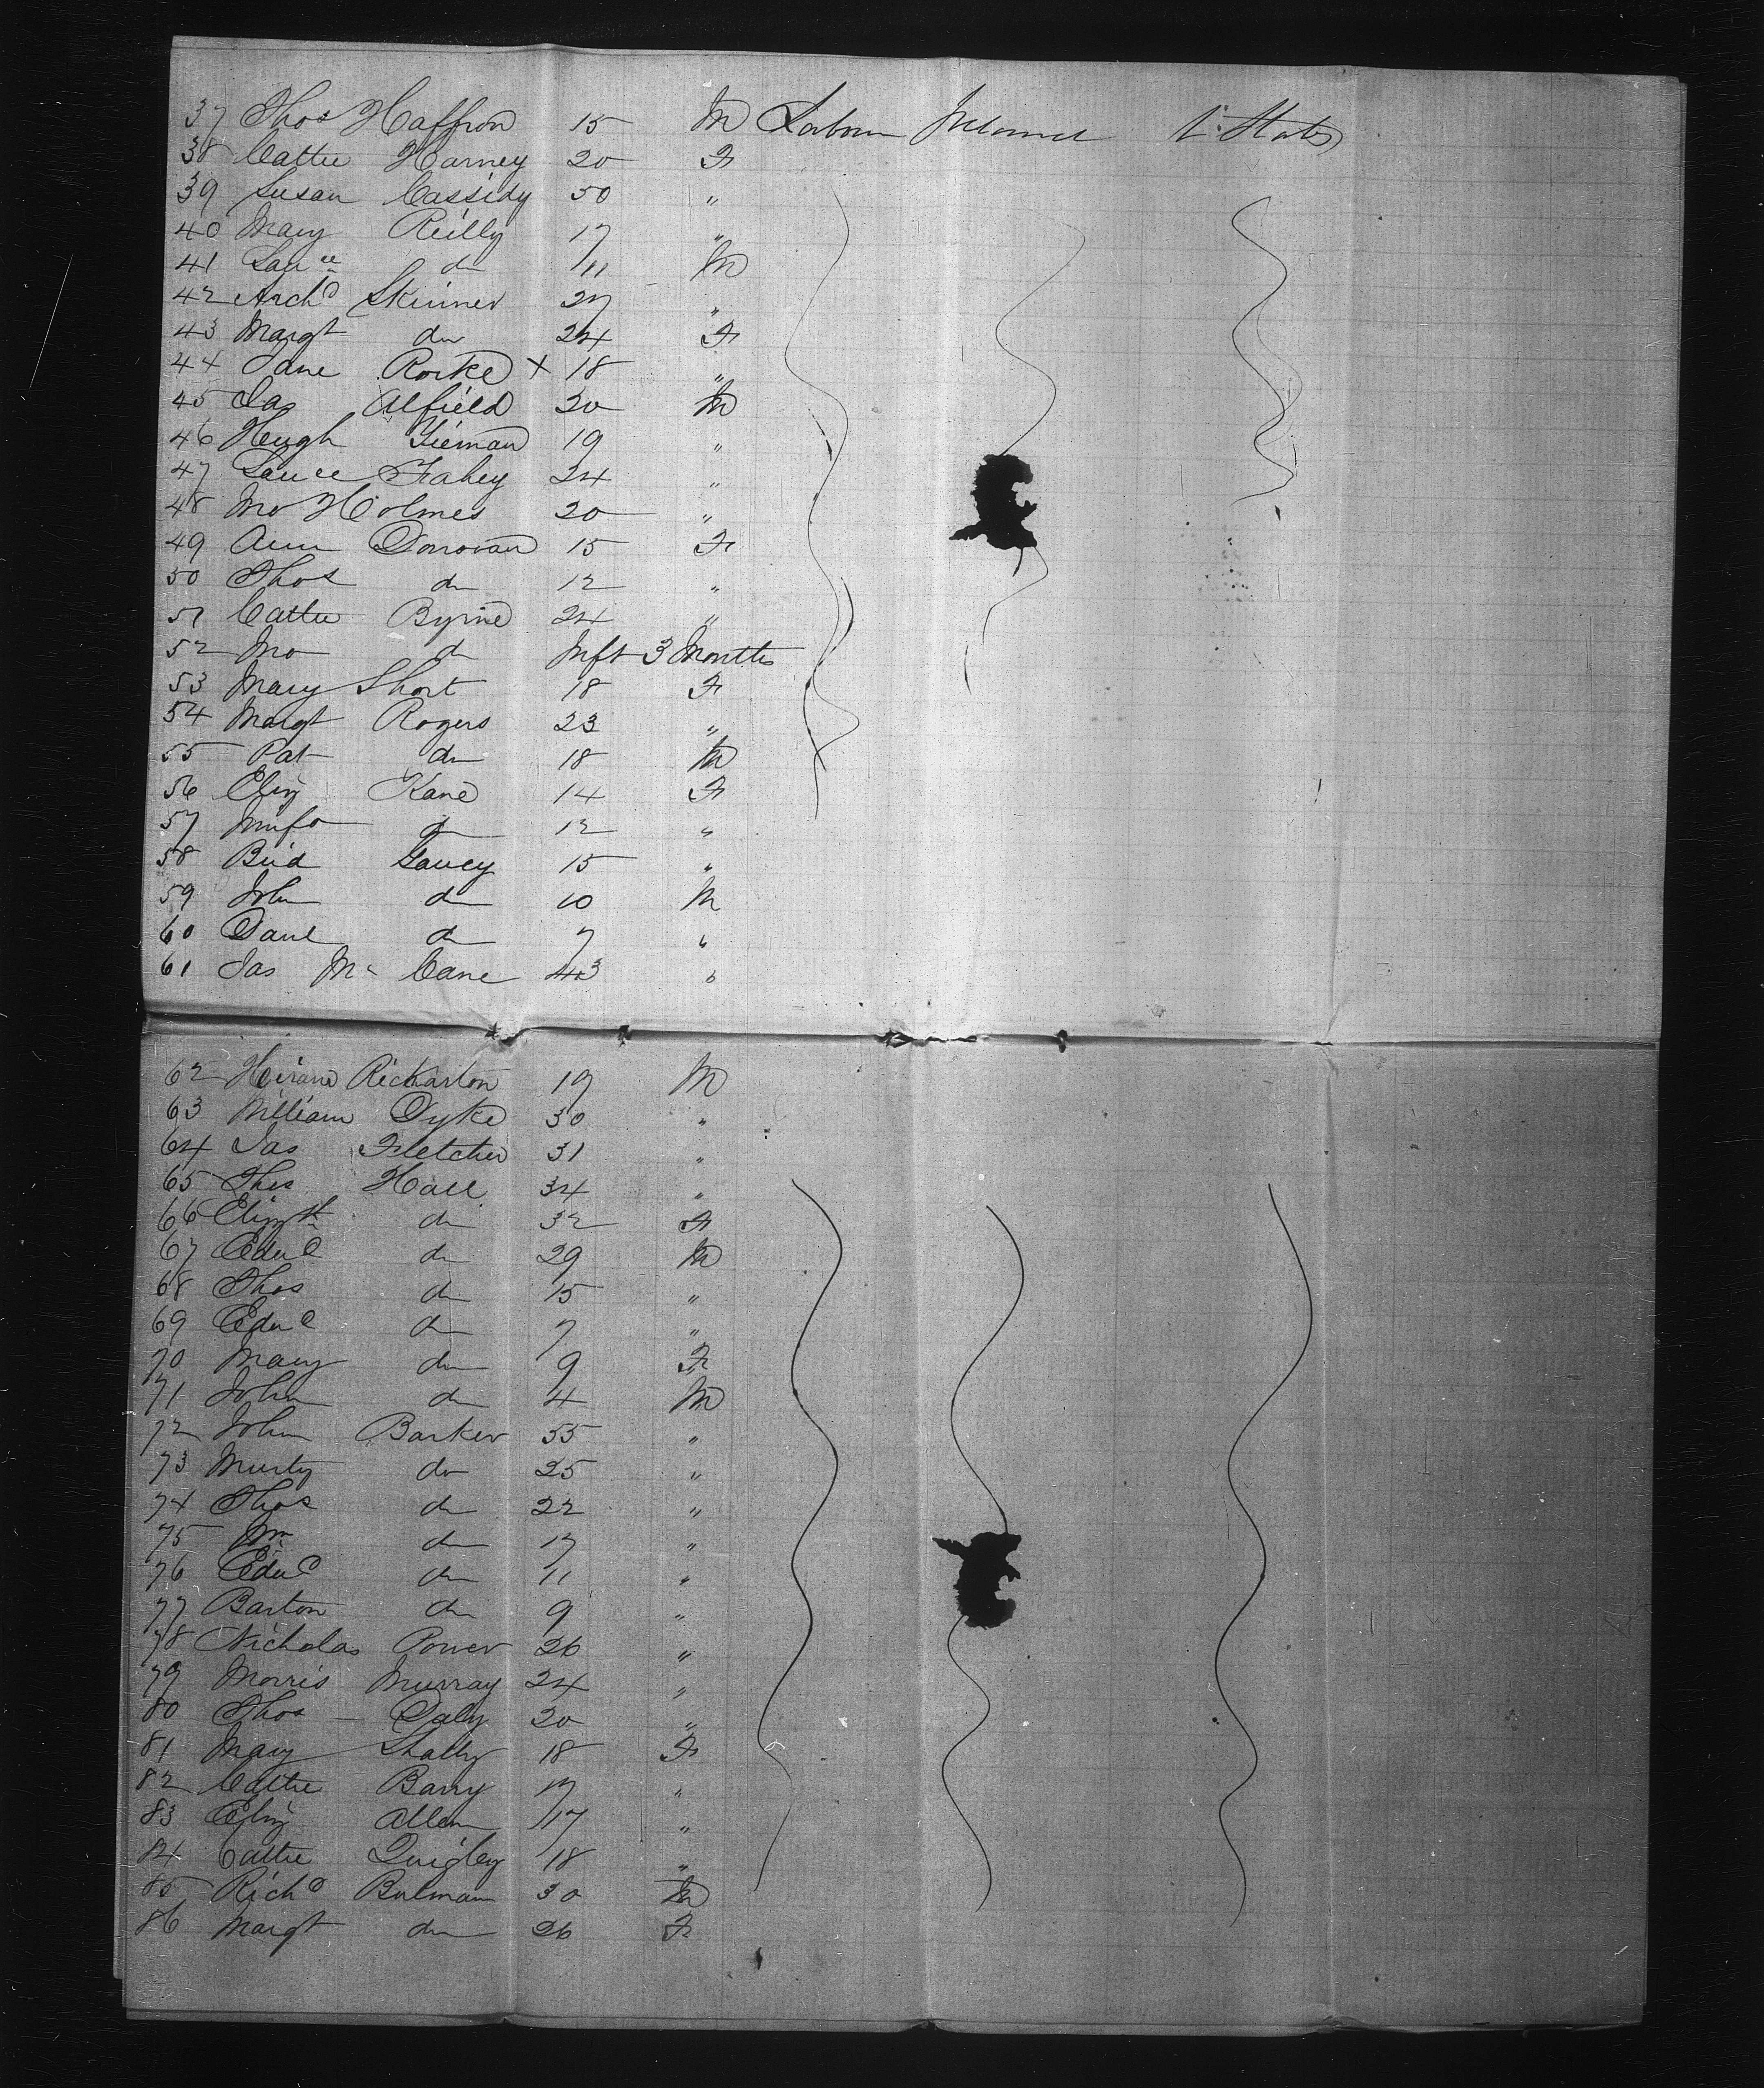 37 Thos Haffron 15 M Labour Ireland U. States
38 Cathe Harney 20 F
39 Susan Cassidy 50 "
40 Mary Reilly 17 "
41 Lauce do 11 M
42 Archd Skinner 27 "
43 Margt do 24 F
44 Jane Rorke X 18 "
45 Jas Alfield 20 M
46 Hugh Tieman 19 "
47 Lauce Fahey 24 "
48 Jno Holmes 20 "
49 Ann Donovan 15 F
50 Thos do 12 "
51 Cathe Byrne 24 "
52 Jno do Inft 3 Months
53 Mary Short 18 F
54 Margt Rogers 23 "
55 Pat do 18 M
56 Eliz Kane 14 F
57 do 12 "
58 Brid 15 "
59 John do 10 M
60 Danl do 7 "
61 Jas Mc Cane 43 "
62 Hiram Rickarton 19 M
63 William Dyke 30 "
64 Jas Fletcher 31 "
65 Thos Hall 34 "
66 Elizth do 32 F
67 Edwd do 29 M
68 Thos do 15 "
69 Edwd do 7 "
70 Mary do 9 F
71 John do 4 M
72 John Barker 55 "
73 Murty do 25 "
74 Thos do 22 "
75 Wm do 17 "
76 Edwd do 11 "
77 Barton do 9 "
78 Nicholas Power 26 "
79 Morris Murray 24 "
80 Thos Daly 20 "
81 Mary 18 F
82 Cathe Barry 17 "
83 Eliz Allen 17 "
84 Cathe Quigley 18 "
85 Richd Bulman 30 M
86 Margt do 26 F